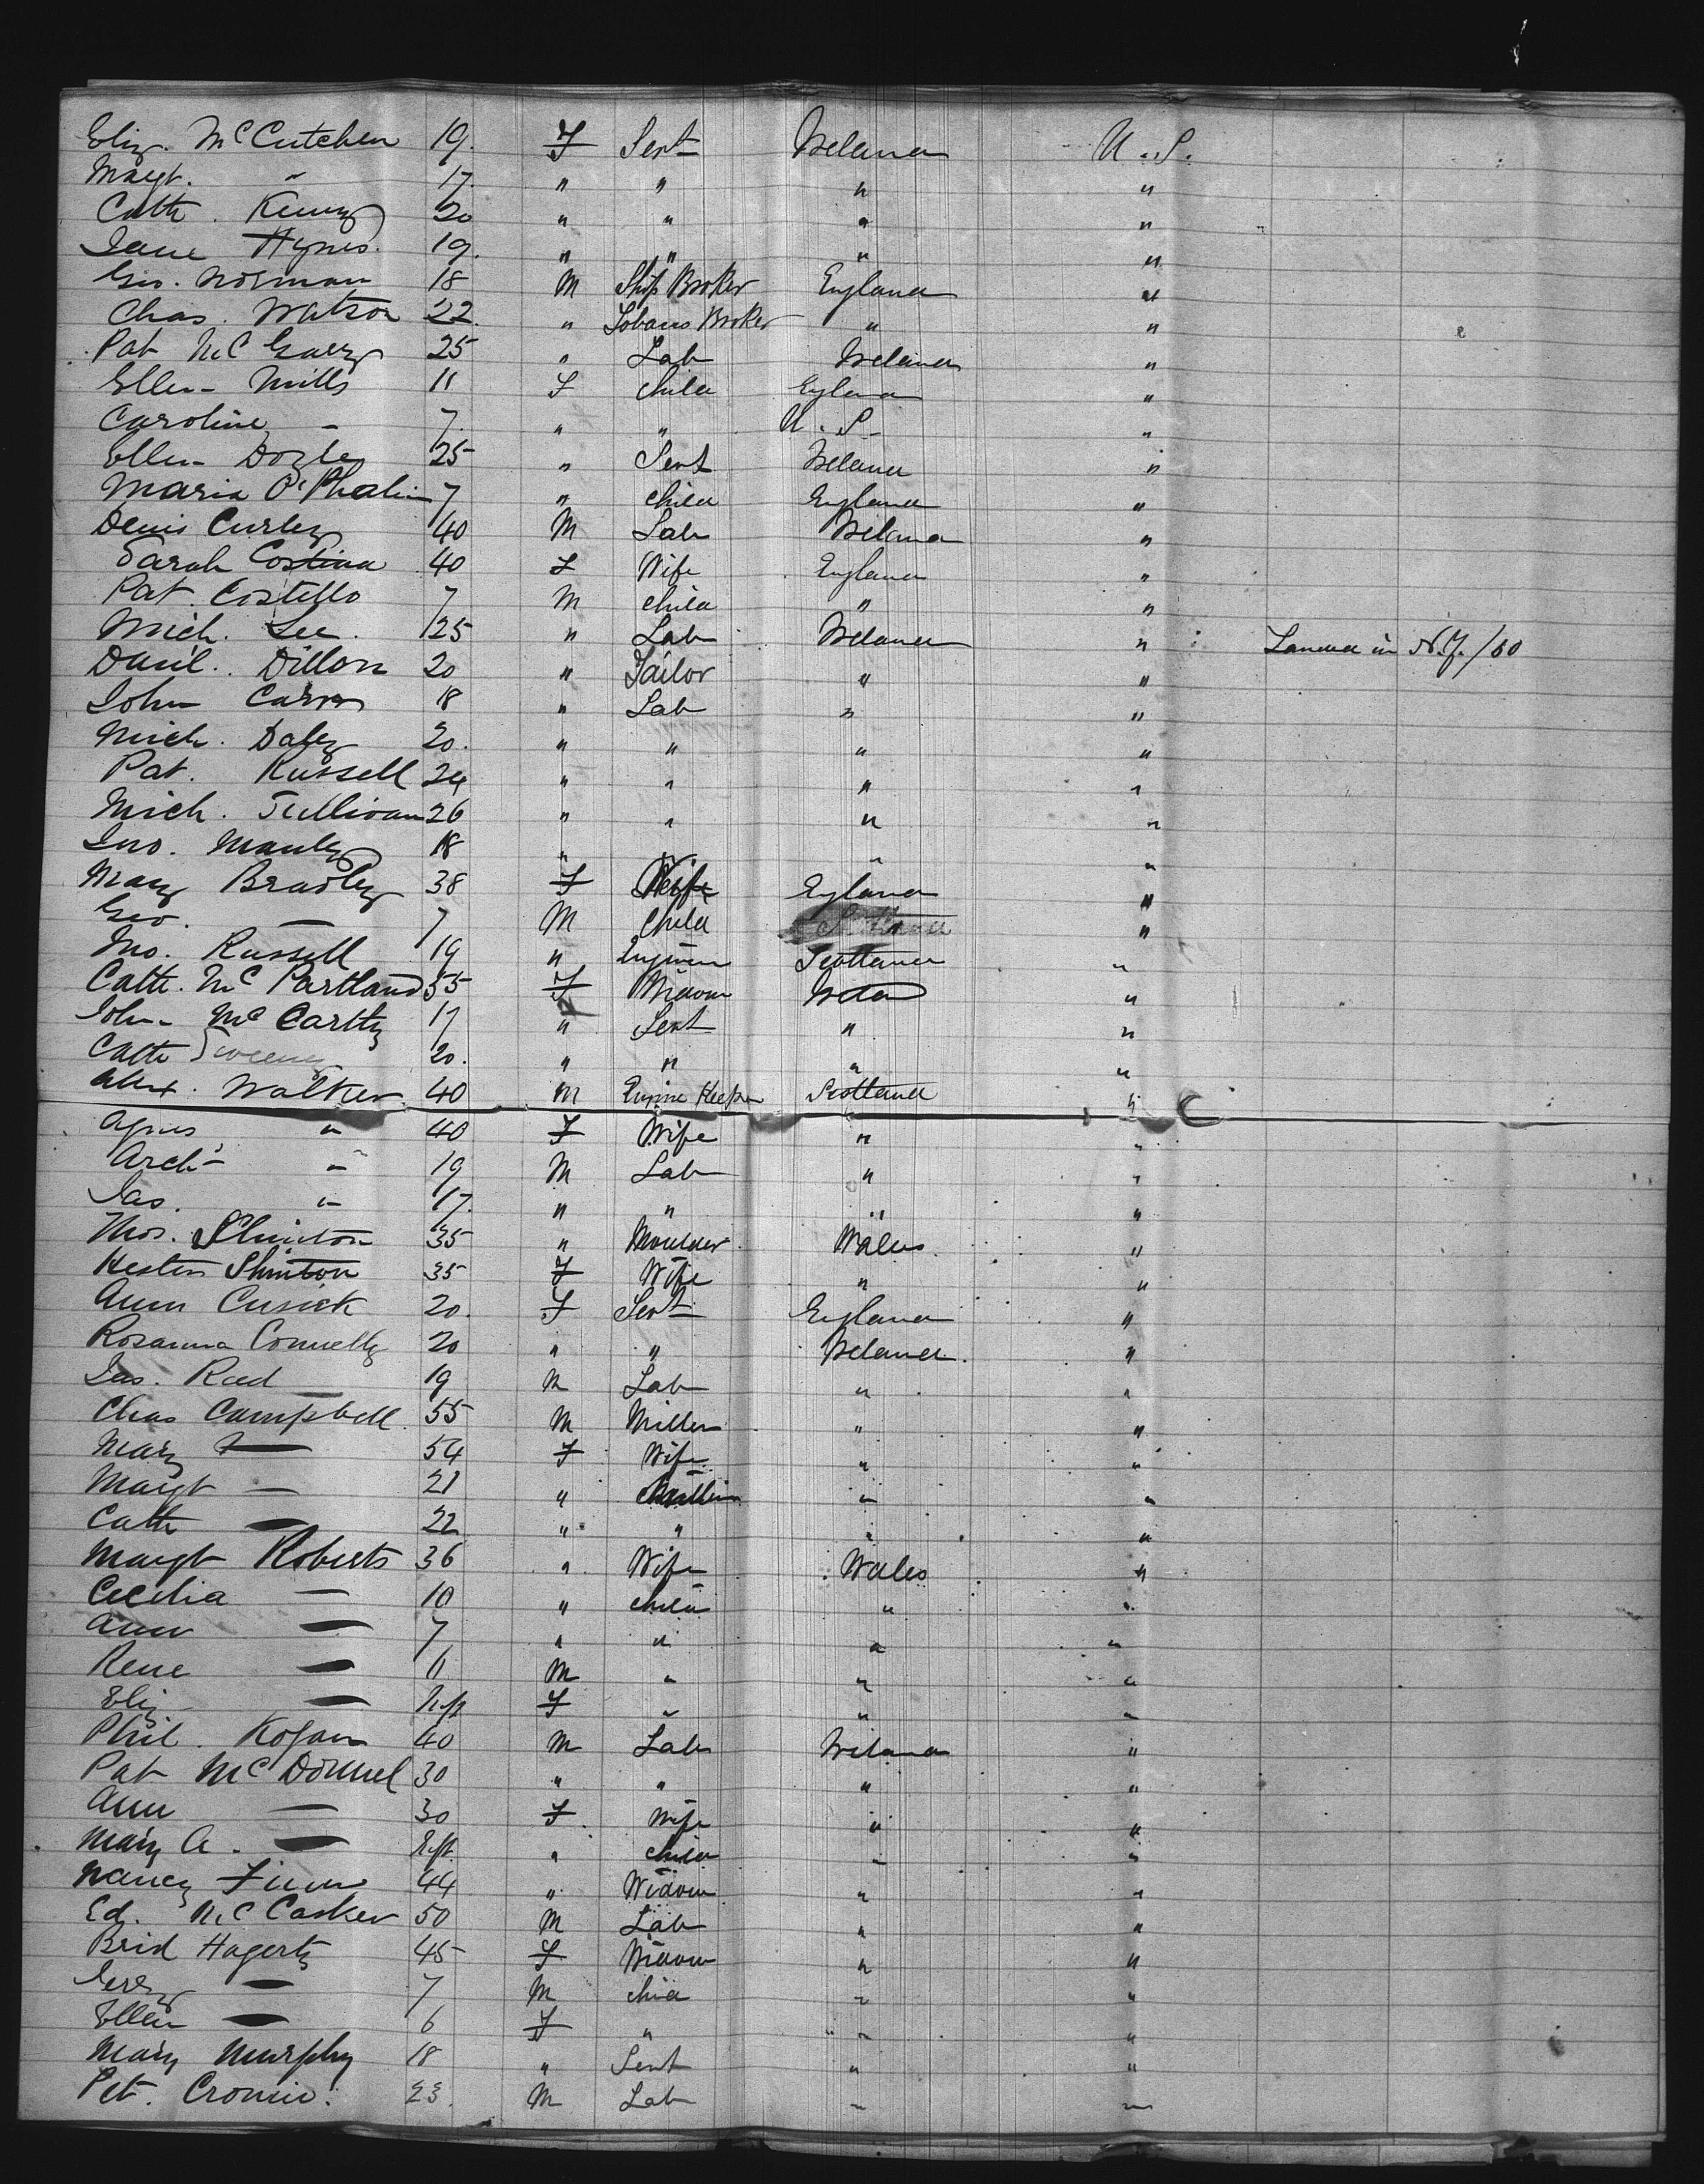 Eliz. McCutchen 19. F Sert Ireland U.S.
Margt. " 17. " " " "
Cath. Kenny 20 " " " "
Jane Hynes. 19. " " " "
Geo. Norman 18 M Ship Broker England "
Chas. Watson 22. " Tobacco Broker " "
Pat McGarry 25 " Lab Ireland "
Ellen Mills 11 F Child England "
Caroline - 7. " " U.S. "
Ellen Doyle 25 " Sert Ireland "
Maria 7 " Child England "
Denis Curley 40 M Lab Ireland "
Sarah 40 F Wife England "
Pat. Costello 7 M Child " "
Mich. Lee. 25 " Lab Ireland " Landed in N.Y. /60
Danl. Dillon 20 " Tailor " "
John 18 " Lab " "
Mich. Daley 20. " " " "
Pat. Russell 24 " " " "
Mich. Sullivan 26 " " " "
Jno. Manley 18 " " " "
Mary Bradley 38 F Wife England "
Geo. — 7 M Child "
Jno. Russell 19 " Scotland "
Cath. McPartland 55 F Widow "
John McCarthy 17 " Sert " "
Cath Sweeney 20. " " " "
Alex. Walker 40 M Engine Keeper Scotland "
Agnes " 40 F Wife " "
Arch " 19 M Lab " "
Jas. " 17. " " " "
Thos. Shinton 35 " Moulder Wales "
Hester Shinton 35 F Wife " "
Ann Cusick 20. F Sert England "
Rosanna Connelly 20 " " Ireland "
Jas. Reed 19 M Lab " "
Chas Campbell 55 M Miller " "
Mary — 54 F Wife " "
Margt — 21 " " "
Cath — 22 " " " "
Margt Roberts 36 " Wife Wales "
Cecelia — 10 " Child " "
Ann — 7 " " " "
Rene — 11 M " " "
Eliz — F " " "
Phil. 40 M Lab Ireland "
Pat McDonnel 30 " " " "
Ann — 30 F Wife " "
Mary A. — " Child " "
Nancy Finn 44 " Widow " "
Ed. McCasker 50 M Lab " "
Brid Hagerty 45 F Widow " "
Jerry — 7 M Child " "
Ellen — 6 F " " "
Mary Murphy 18 " Sert " "
Pet. Cronin. 23. M Lab " "